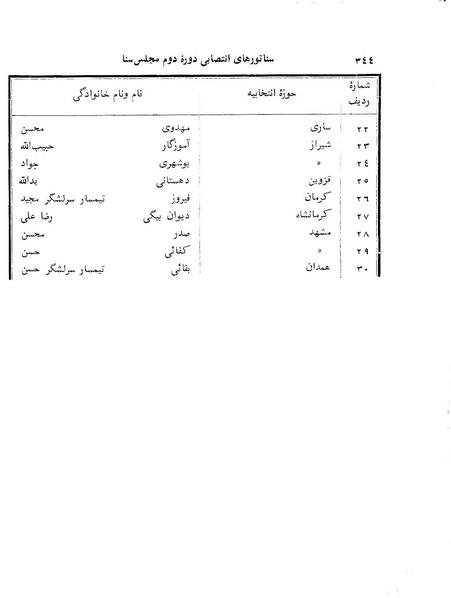 ۳۴۴ سناتورهای انتصابی دورهٔ دوم مجلس سنا
شمارهٔ ردیف حوزهٔ انتخابیه نام ونام خانوادگی
۲۲ ساری مهدوی محسن
۲۳ شیراز آموزگار حبیب‌الله
۲۴ » بوشهری جواد
۲۵ قزوین دهستانی یدالله
۲۶ کرمان فیروز تیمسار سرلشگر مجید
۲۷ کرمانشاه دیوان بیگی رضا علی
۲۸ مشهد صدر محسن
۲۹ » کفائی حسن
۳۰ همدان بقائی تیمسار سرلشگر حسن